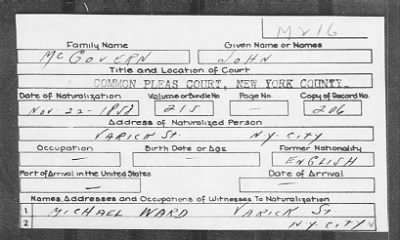 MV16
Family Name Given Name or Names
McGOVERN JOHN
Title and Location of Court
COMMON PLEAS COURT, NEW YORK COUNTY.
Date of Naturalization Volume or Bundle No. Page No. Copy of Record No.
Nov-22-1858 215 — 206
Address of Naturalized Person
VARICK St. N.Y. CITY
Occupation Birth Date or Age Former Nationality
— — ENGLISH
Port of Arrival in the United States Date of Arrival
— —
Names, Addresses and Occupations of Witnesses To Naturalization
1 MICHAEL WARD VARICK St
2 N.Y. CITY